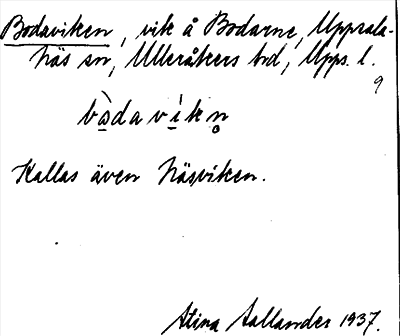 Bodaviken, vik å Bodarne, Uppsala-
Näs sn, Ulleråkers hd, Upps. l.
9
bo̲da vi̲kn̥
Kallas även Näsviken.
Stina Sallander 1937.